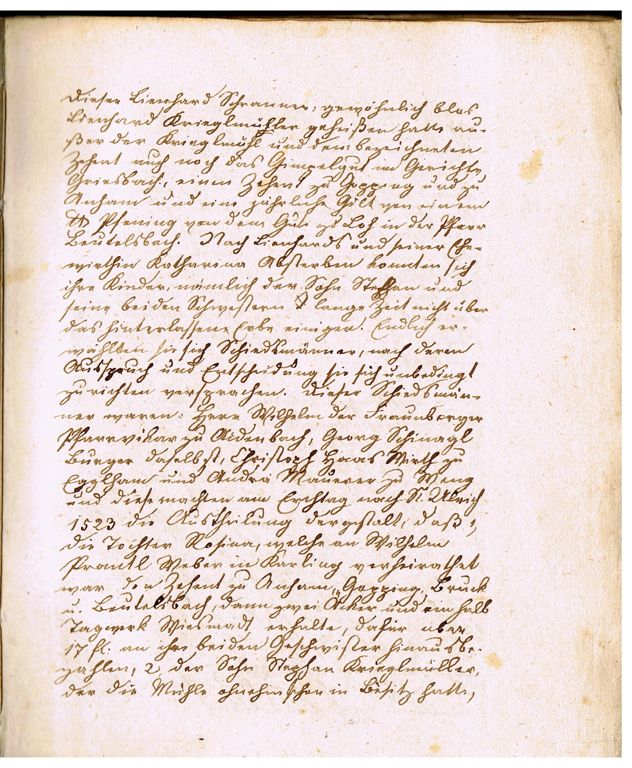 Dieser Lienhard Schranner, gewöhnlich blos
Lienhard Krieglmüller geheißen hatte au-
ßer der Krieglmühl und dem bezeichneten
Zehent auch noch das Gimpelgut im Gerichte
Griesbach, einen Zehent zu Gopping und zu
Anham und eine jährliche Gült von einem
lb Pfening von dem Gut zu Loh in der Pfarr
Beutelsbach. Nach Lienhards und seiner Ehe-
wirthin Katharina Absterben konnten sich
ihre Kinder, nämlich der Sohn Stephan und
seine beiden Schwestern lange Zeit nicht über
das hinterlassene Erbe einigen. Endlich er-
wählten sie sich Schiedsmänner, nach deren
Ausspruch und Entscheidung sie sich unbedingt
zu richten versprachen. Dieser Schiedsmän-
ner waren: Herr Wilhelm der Fraunberger
Pfarrvikar zu Aidenbach, Georg Schinagl
Bürger daselbst, Christoph Haas Wirth zu
Egglham und Andrä Mauerer zu Weng
und diese machten am Erchtag nach St. Ulrich
1523 die Austheilung dergestalt, daß 1,
die Tochter Rosina, welche an Wilhelm
Prantl Weber in Karling verheirathet
war den Zehent zu Anham, Gopping, Bruck
u. Beutelsbach, dann zwei Äcker und ein halb
Tagwerk Wiesmadt erhalte, dafür aber
17 fl. an ihre beiden Geschwister hinausbe-
zahlen, 2, der Sohn Stephan Krieglmüller,
der die Mühle ohnehin schon in Besitz hatte,